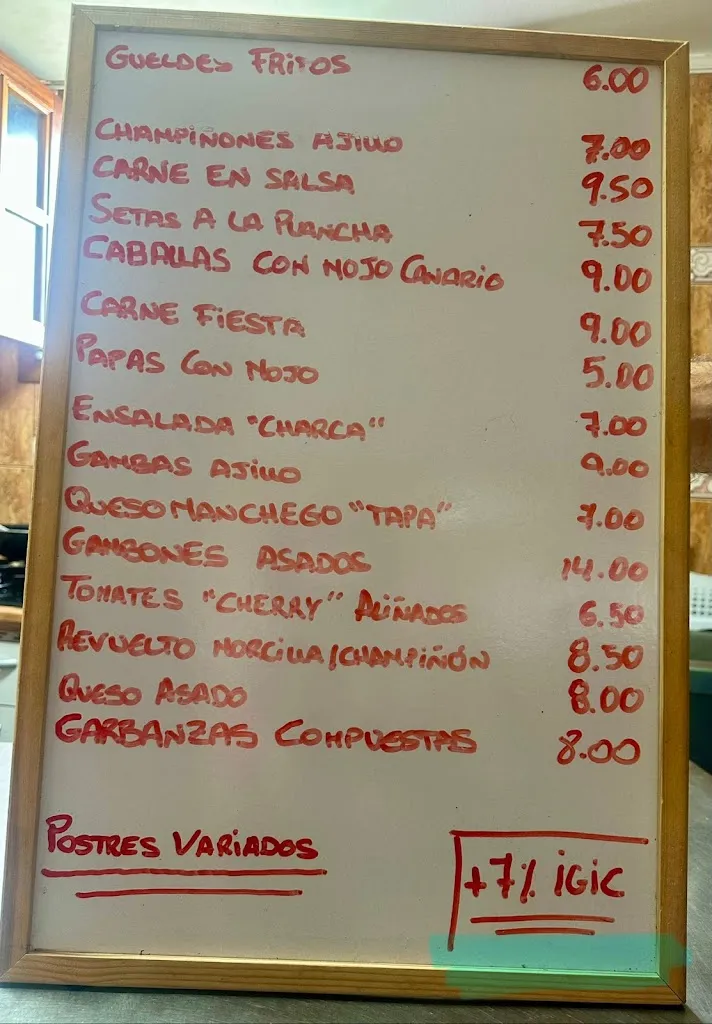 GUELDES FRITOS 6.00
CHAMPIÑONES AJILLO 7.00
CARNE EN SALSA 9.50
SETAS A LA PLANCHA 7.50
CABALLAS CON MOJO CANARIO 9.00
CARNE FIESTA 9.00
PAPAS CON MOJO 5.00
ENSALADA "CHARCA" 7.00
GAMBAS AJILLO 9.00
QUESO MANCHEGO "TAPA" 7.00
GAMBONES ASADOS 14.00
TOMATES "CHERRY" ALIÑADOS 6.50
REVUELTO MORCILLA/CHAMPIÑÓN 8.50
QUESO ASADO 8.00
GARBANZAS COMPUESTAS 8.00
POSTRES VARIADOS
+7% IGIC